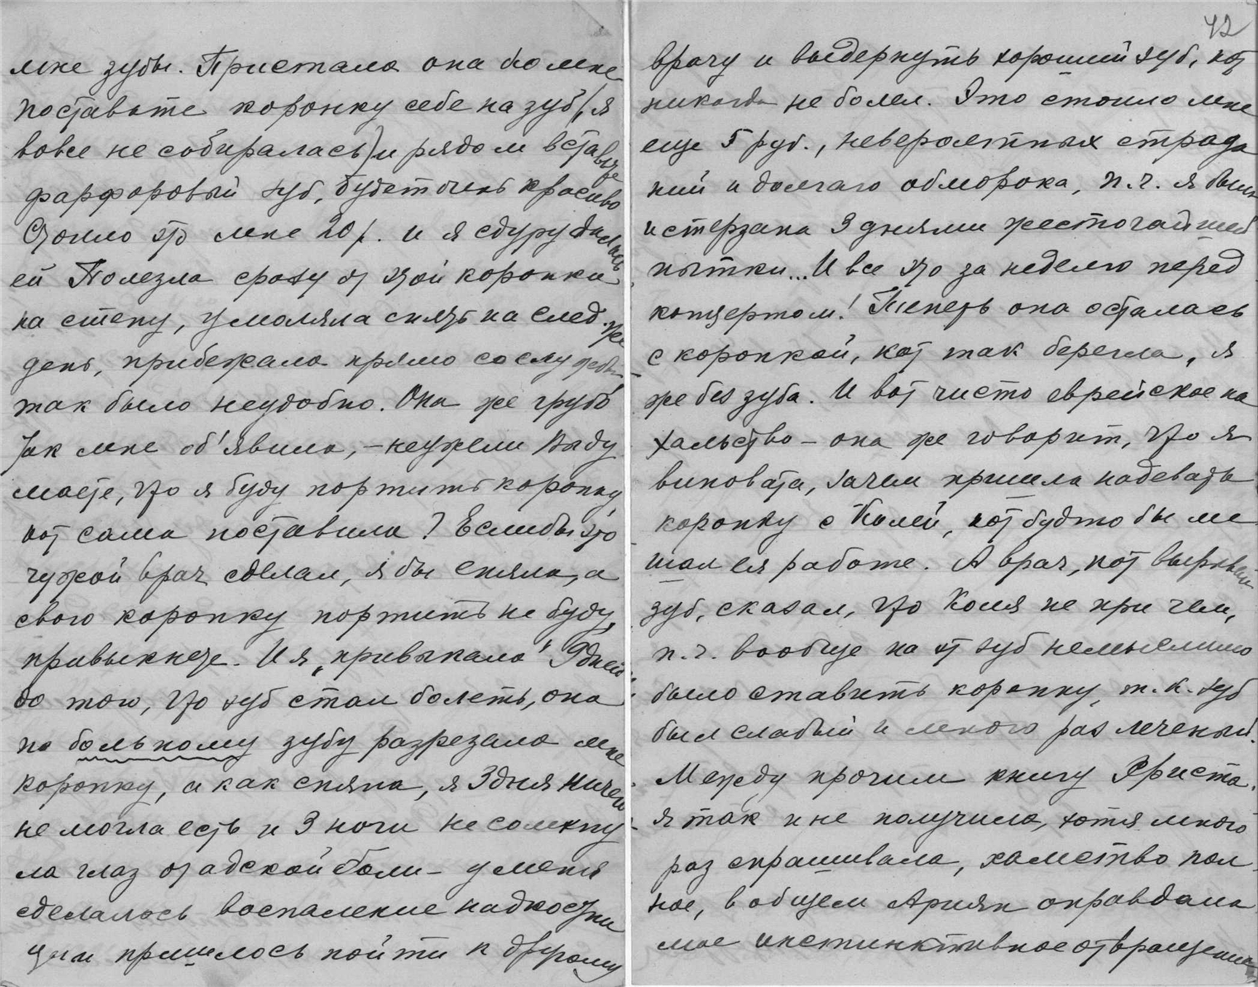 мне зубы. Пристала она ко мне
поставьте коронку себе на зуб (я
вовсе не собиралась) и рядом вставьте
фарфоровый зуб, будет очень красиво
Стоило это мне 20 р. и я сдуру далась
ей Полезла сразу от этой коронки
на стену, умоляла снять на след. же
день, прибежала прямо со службы
так было неудобно. Она же грубо
так мне об'явила, – неужели Вы ду
маете, что я буду портить коронку
кот сама поставила? Если бы это
чужой врач сделал, я бы сняла, а
свою коронку портить не буду,
привыкнете. И я "привыкала" 9 дней
до того, что зуб стал болеть, она
по больному зубу разрезала мне
коронку, а как сняла, я 3 дня ничего
не могла есть и 3 ночи не сомкну
ла глаз от адской боли – у меня
сделалось воспаление надкостни
цы и пришлось пойти к другому
42
врачу и выдернуть хороший зуб, кот
никогда не болел. Это стоило мне
еще 5 руб., невероятных страда
ний и долгаго обморока, п.ч. я была
истерзана 3 днями жесточайшей
пытки... И все это за неделю перед
концертом! Теперь она осталась
с коронкой, кот так берегла, я
же без зуба. И вот чисто еврейское на
хальство – она же говорит, что я
виновата, зачем пришла надевать
коронку с Колей, кот будто бы ме
шал ея работе. А врач, кот вырывал
зуб, сказал, что Коля не при чем,
п.ч. вообще на этот зуб немыслимо
было ставить коронку, т.к. зуб
был слабый и много раз леченый.
Между прочим книгу Христа
я так и не получила, хотя много
раз спрашивала, хамство пол
ное, в общем Ариян оправдала
мое инстинктивное отвращение